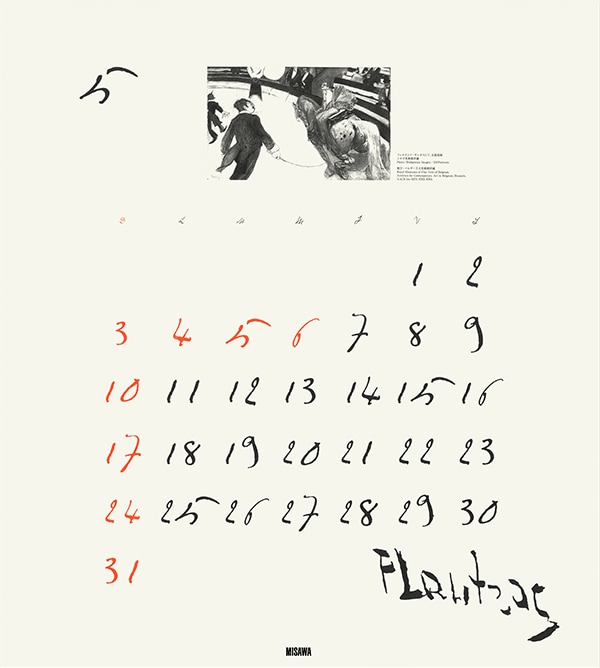 5
D L M M J V S
1 2
3 4 5 6 7 8 9
10 11 12 13 14 15 16
17 18 19 20 21 22 23
24 25 26 27 28 29 30
31
HLautrec
MISAWA